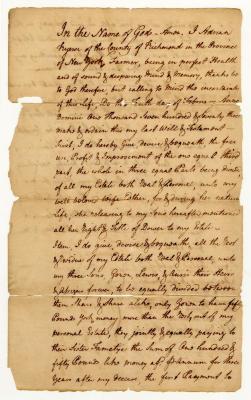 In the Name of God Amen. I Adrian
of the County of Richmond in the Province
of New York, Farmer, being in perfect Health
and of sound & disposing Mind & Memory, thanks be
to God therefor, but calling to mind the uncertainty
of this Life, Do this Tenth day of Anno
Domini One Thousand Seven hundred & Seventy three
make & ordain this my last Will & Testament
First, I do hereby Give devise & bequeath the free
use, Profit & Improvement of the one equal third
part, the whole in three equal Parts being divided,
of all my Estate both Real & Personal, unto my
well beloved Wife Esther, for & during her natural
Life, she releasing to my Sons hereafter mentioned
all her Right & Title of Dower to my Estate
Item, I do give, devise & bequeath all the Rest
& Residue of my Estate both Real & Personal, unto
my three Sons, Lewis & their Heirs
& Assigns forever, to be equally divided between
them Share & Share alike, only to have fifty
Pound York money more than the Rest, out of my
personal Estate, they jointly & equally paying to
their Sister the Sum of One hundred &
fifty Pound like money at per annum for three
Years after my decease the first Payment to